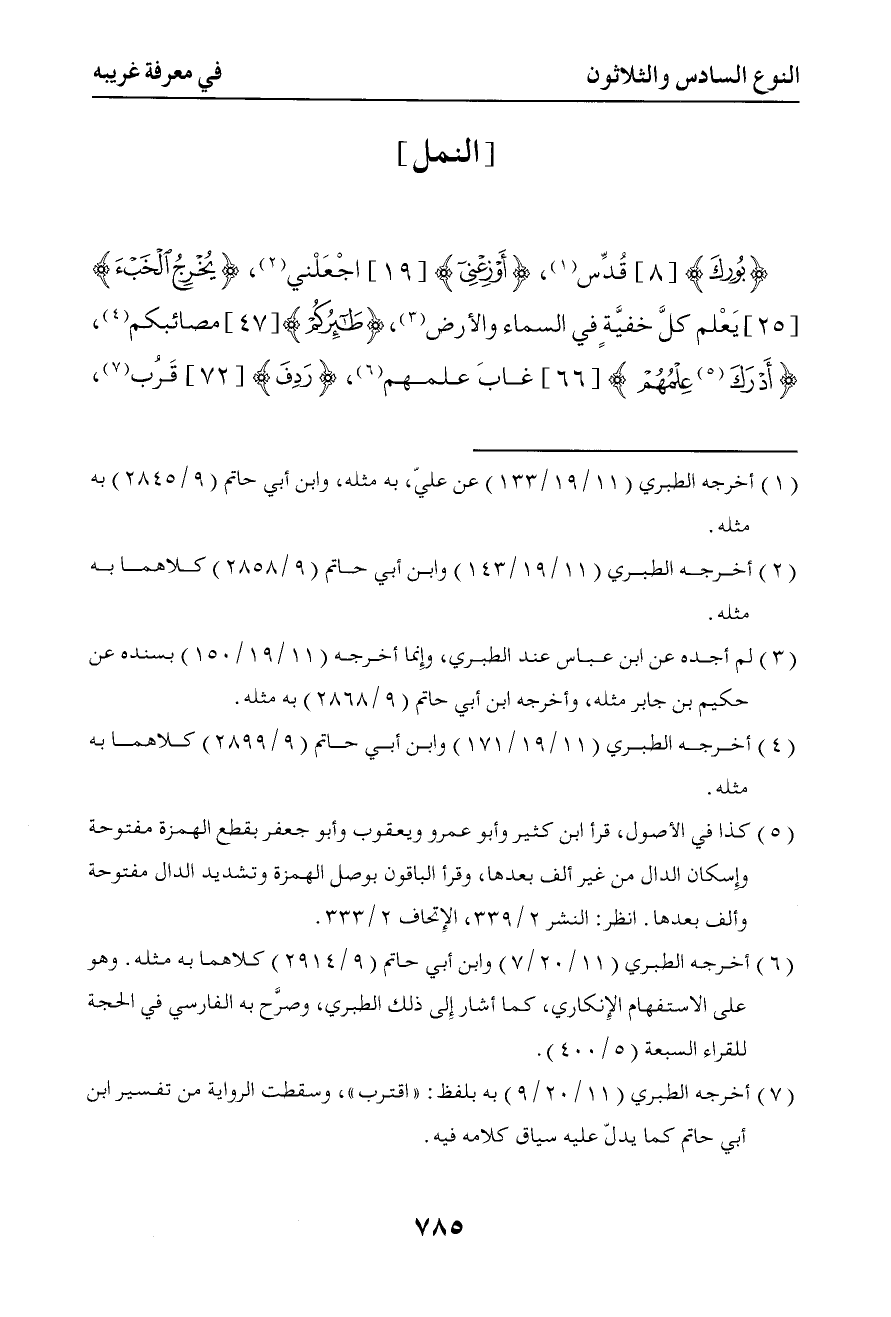 النوع السادس والثلاثون في معرفة غريبه
[ النمل ]
﴿ بُورِكَ ﴾ [ ٨ ] قُدِّس(١)، ﴿ أَوْزِعْنِىٓ ﴾ [ ١٩ ] اجْعَلْني(٢)، ﴿ يُخْرِجُ ٱلْخَبْءَ ﴾
[ ٢٥ ] يَعْلم كلَّ خفيَّةٍ في السماء والأرض(٣)، ﴿ طَٰٓئِرُكُمْ ﴾ [ ٤٧ ] مصائبكم(٤)،
﴿ أَدْرَكَ (٥) عِلْمُهُمْ ﴾ [ ٦٦ ] غــابَ علـمــهم(٦)، ﴿ رَدِفَ ﴾ [ ٧٢ ] قَرُب(٧)،
( ١ ) أخرجه الطبري ( ١١ /١٩ /١٣٣ ) عن عليّ، به مثله، وابن أبي حاتم ( ٩ /٢٨٤٥ ) به
مثله .
( ٢ ) أخـرجـه الطبـري ( ١١ /١٩ /١٤٣ ) وابـن أبي حـاتم ( ٩ /٢٨٥٨ ) كـلاهمـا بـه
مثله .
( ٣ ) لم أجـده عن ابن عـباس عند الطبري، وإنما أخـرجـه ( ١١ /١٩ /١٥٠ ) بسنده عن
حكيم بن جابر مثله، وأخرجه ابن أبي حاتم ( ٩ /٢٨٦٨ ) به مثله .
( ٤ ) أخـرجـه الطبـري ( ١١ /١٩ /١٧١ ) وابـن أبـي حـاتم ( ٩ /٢٨٩٩ ) كـلاهمـا به
مثله .
( ٥ ) كذا في الأصول، قرأ ابن كثير وأبو عمرو ويعقوب وأبو جعفر بقطع الهمزة مفتوحة
وإسكان الدال من غير ألف بعدها، وقرأ الباقون بوصل الهمزة وتشديد الدال مفتوحة
وألف بعدها . انظر : النشر ٢ /٣٣٩، الإتحاف ٢ /٣٣٣ .
( ٦ ) أخرجه الطبري ( ١١ /٢٠ /٧) وابن أبي حاتم ( ٩ /٢٩١٤ ) كلاهما به مثله . وهو
على الاستفهام الإنكاري، كما أشار إلى ذلك الطبري، وصرَّح به الفارسي في الحجة
للقراء السبعة ( ٥ /٤٠٠ ) .
( ٧ ) أخرجه الطبري ( ١١ /٢٠ /٩ ) به بلفظ : « اقترب »، وسقطت الرواية من تفسير ابن
أبي حاتم كما يدلّ عليه سياق كلامه فيه .
٧٨٥